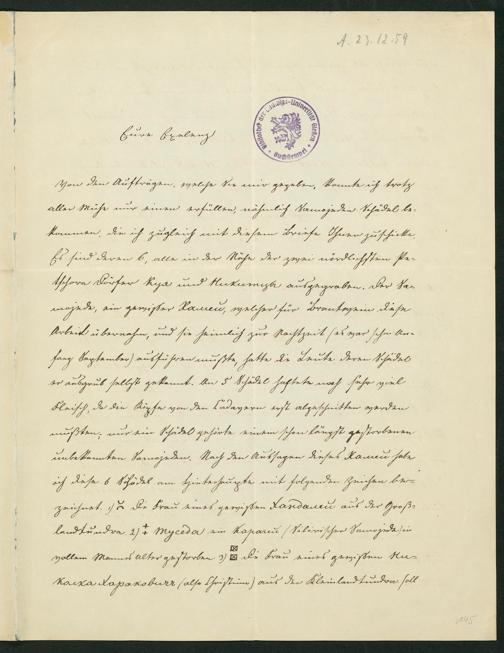 A. 23.12.59
Bibliothek der Ludwigs-Universität Gießen
Eure Exelenz
Von den Aufträgen, welche Sie mir gegeben, konnte ich trotz
aller Mühe nur einen erfüllen, nähmlich Samojeden Schädel be-
kommen, die ich zugleich mit diesem Briefe Ihnen zuschicke.
Es sind deren 6, alle in der Nähe der zwei nördlichsten Pe-
tschora Dörfer Куя und ausgegraben. Der Sa-
mojede, ein gewisser welcher für Brantwein diese
Arbeit übernahm, und sie heimlich zur Nachtzeit (es war schon An-
fang September) ausführen mußte, hatte die Leute deren Schädel
er ausgrub selbst gekannt. An 5 Schädel haftete noch sehr viel
Fleisch, da die Köpfe von den Cadavern erst abgeschnitten werden
mußten, nur ein Schädel gehörte einem schon längst gestorbenen
unbekannten Samojeden. Nach den Aussagen dieses habe
ich diese 6 Schädel am Hinterhaupte mit folgenden Zeichen be-
zeichnet. 1) Die Frau eines gewissen aus der Groß-
landtundra 2) ein (Sibirischer Samojede) in
vollem Mannesalter gestorben 3) Die Frau eines gewissen
(also Christinn) aus der Kleinlandtundra soll
145